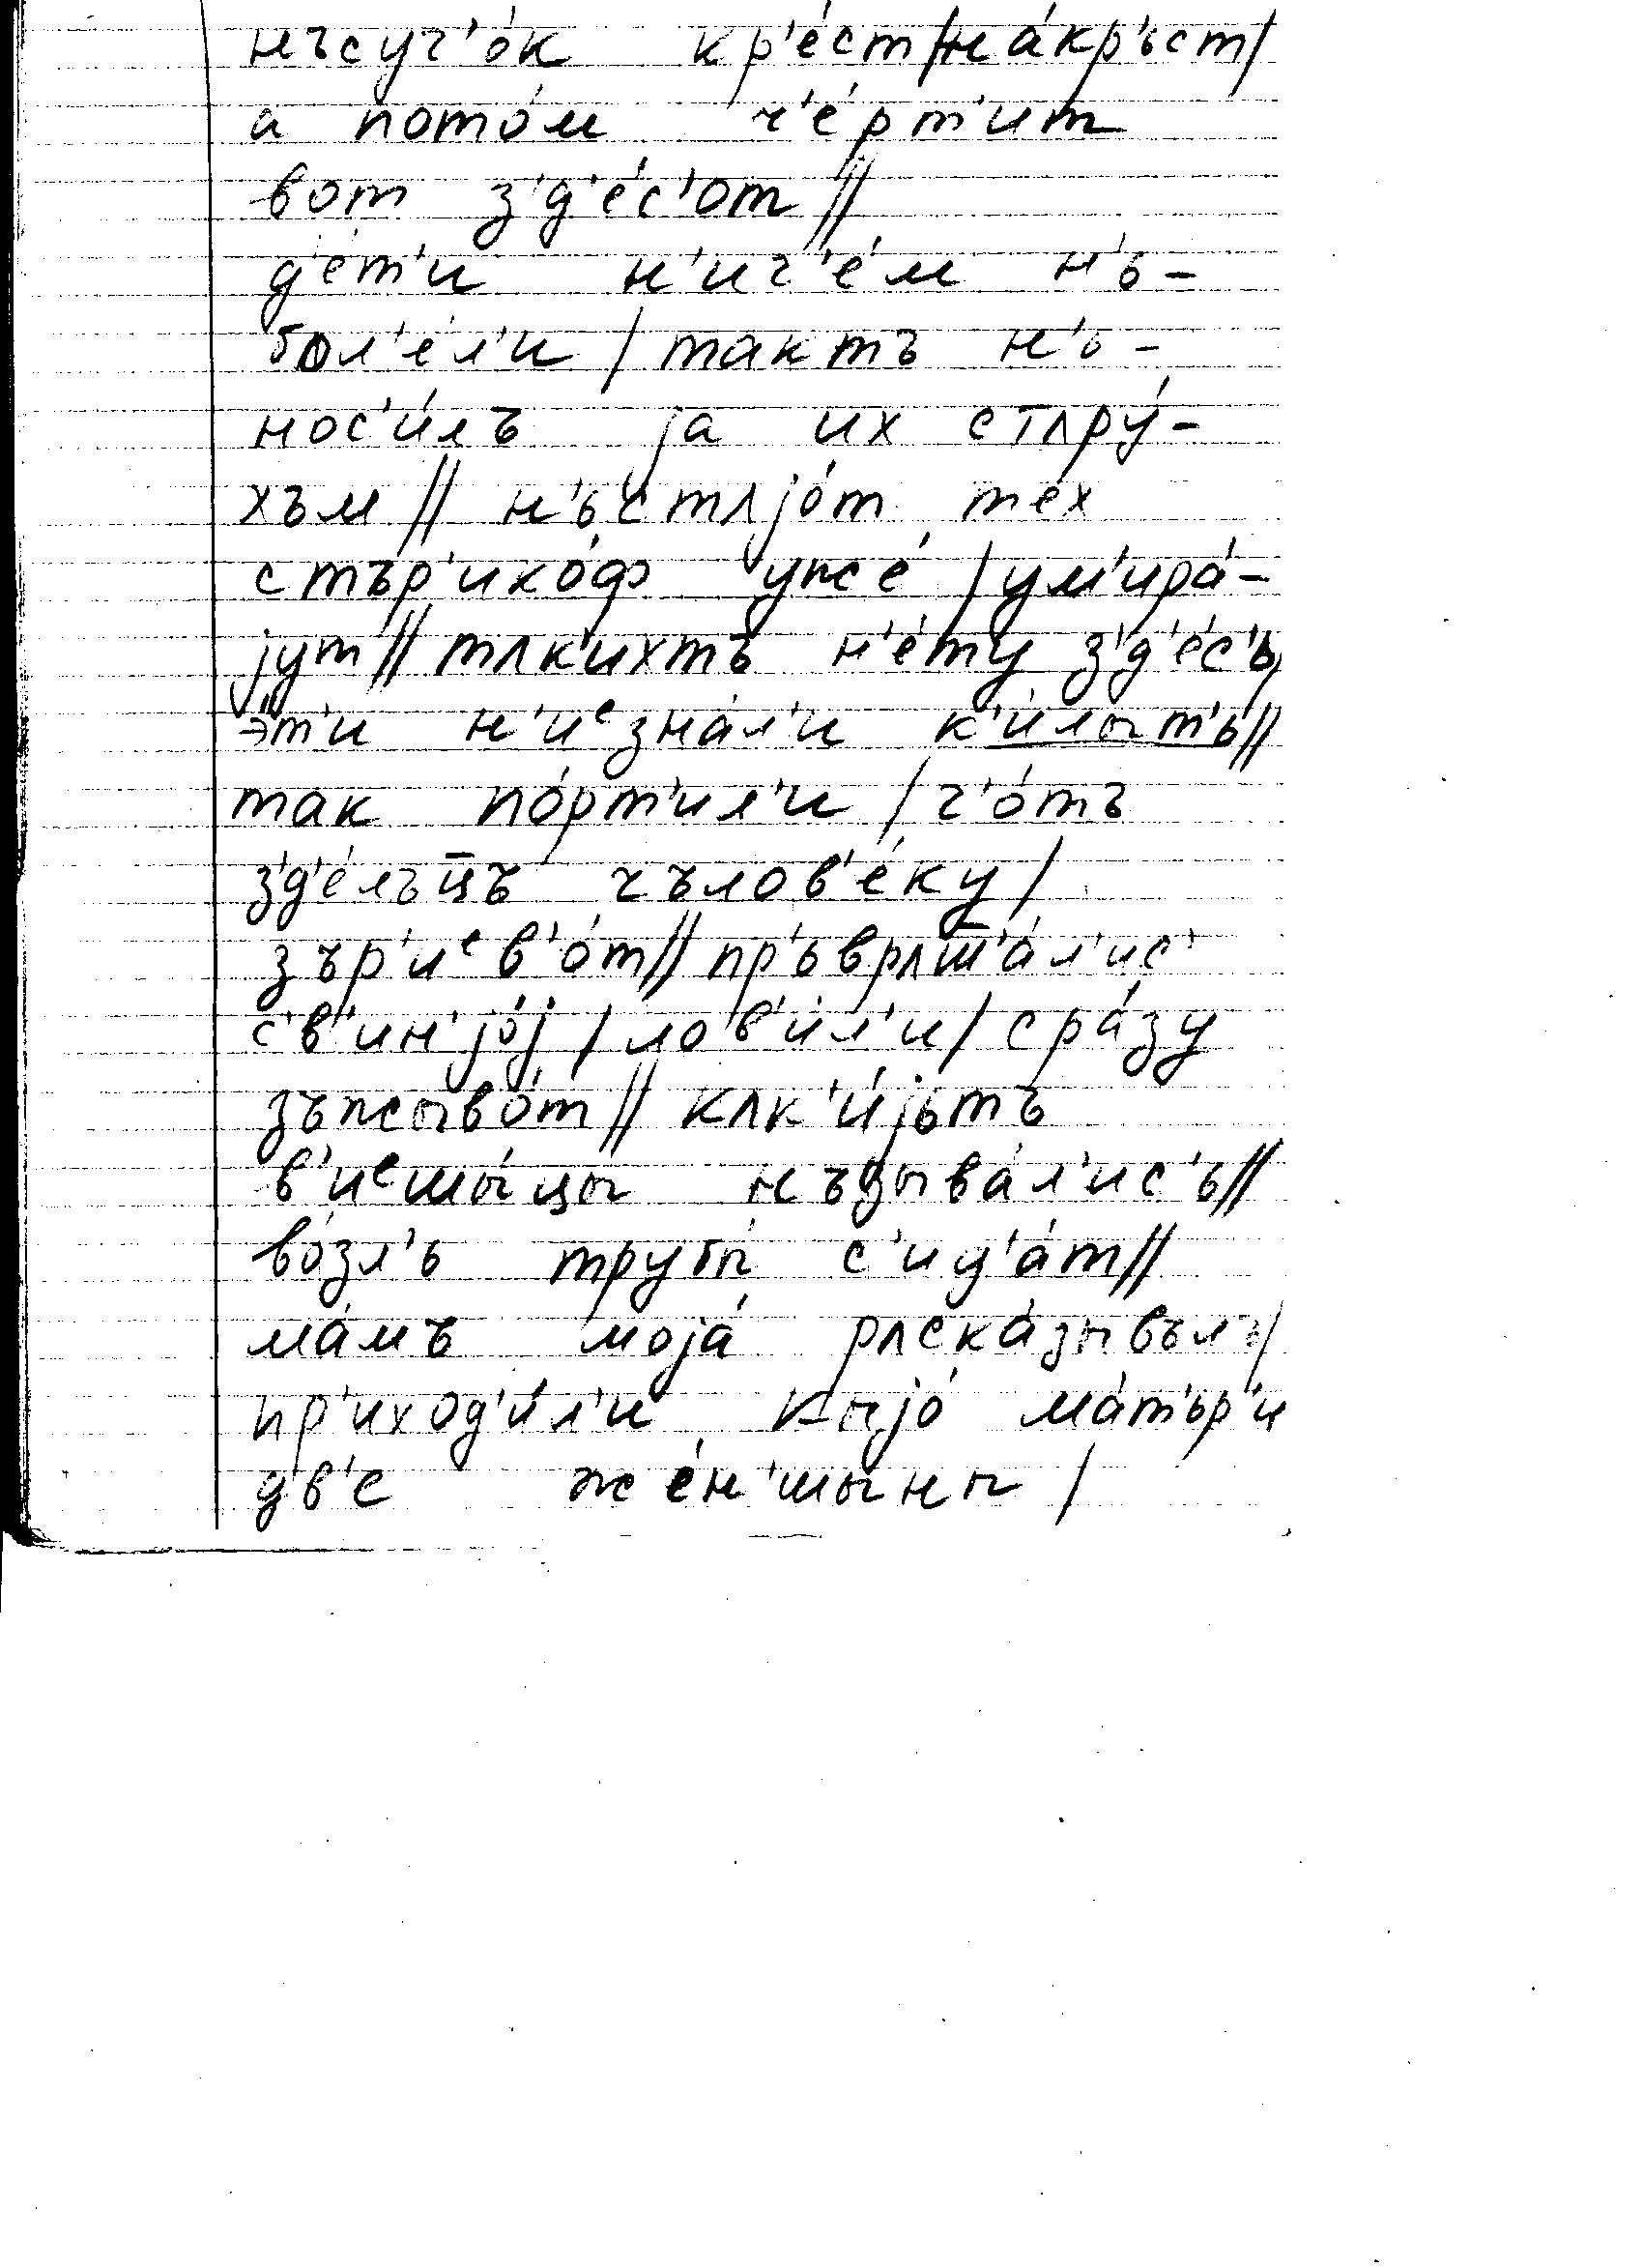 нъсуч'о́к кр'е́ст/на́кр'ьст/
а пото́м ч'е́рт'ит
вот з'д'е́с'от//
д'е́т'и н'ич'е́м н'ь-
бол'е́л'и / тактъ н'ь-
нос'и́лъ jа их стʌру́-
хъм // н'ьстʌjо́т тех
стър'ико́ф уже́ / ум'ира́-
jут // тʌк'ихтъ н'е́ту з'д'е́с'ь/
э́т'и н'иᵉзна́л'и к'и́лыт'ь//
так по́рт'ил'и / ч'о́тъ
з'д'е́лъц̄ъ чълов'е́ку /
зър'иᵉв'о́т // пр'ьврʌш̄'а́л'ис'
с'в'ин'jо́j / лов'и́л'и / сра́зу
зъжыво́т // кʌк'и́jьтъ
в'иᵉшы́цы нъзыва́л'ис'ь//
во́зл'ь трубы́ с'ид'а́т//
ма́мъ моjа́ рʌска́зывълъ/
пр'иход'и́л'и кыjо́ ма́т'ьр'и
д'в'е же́н'шыны /